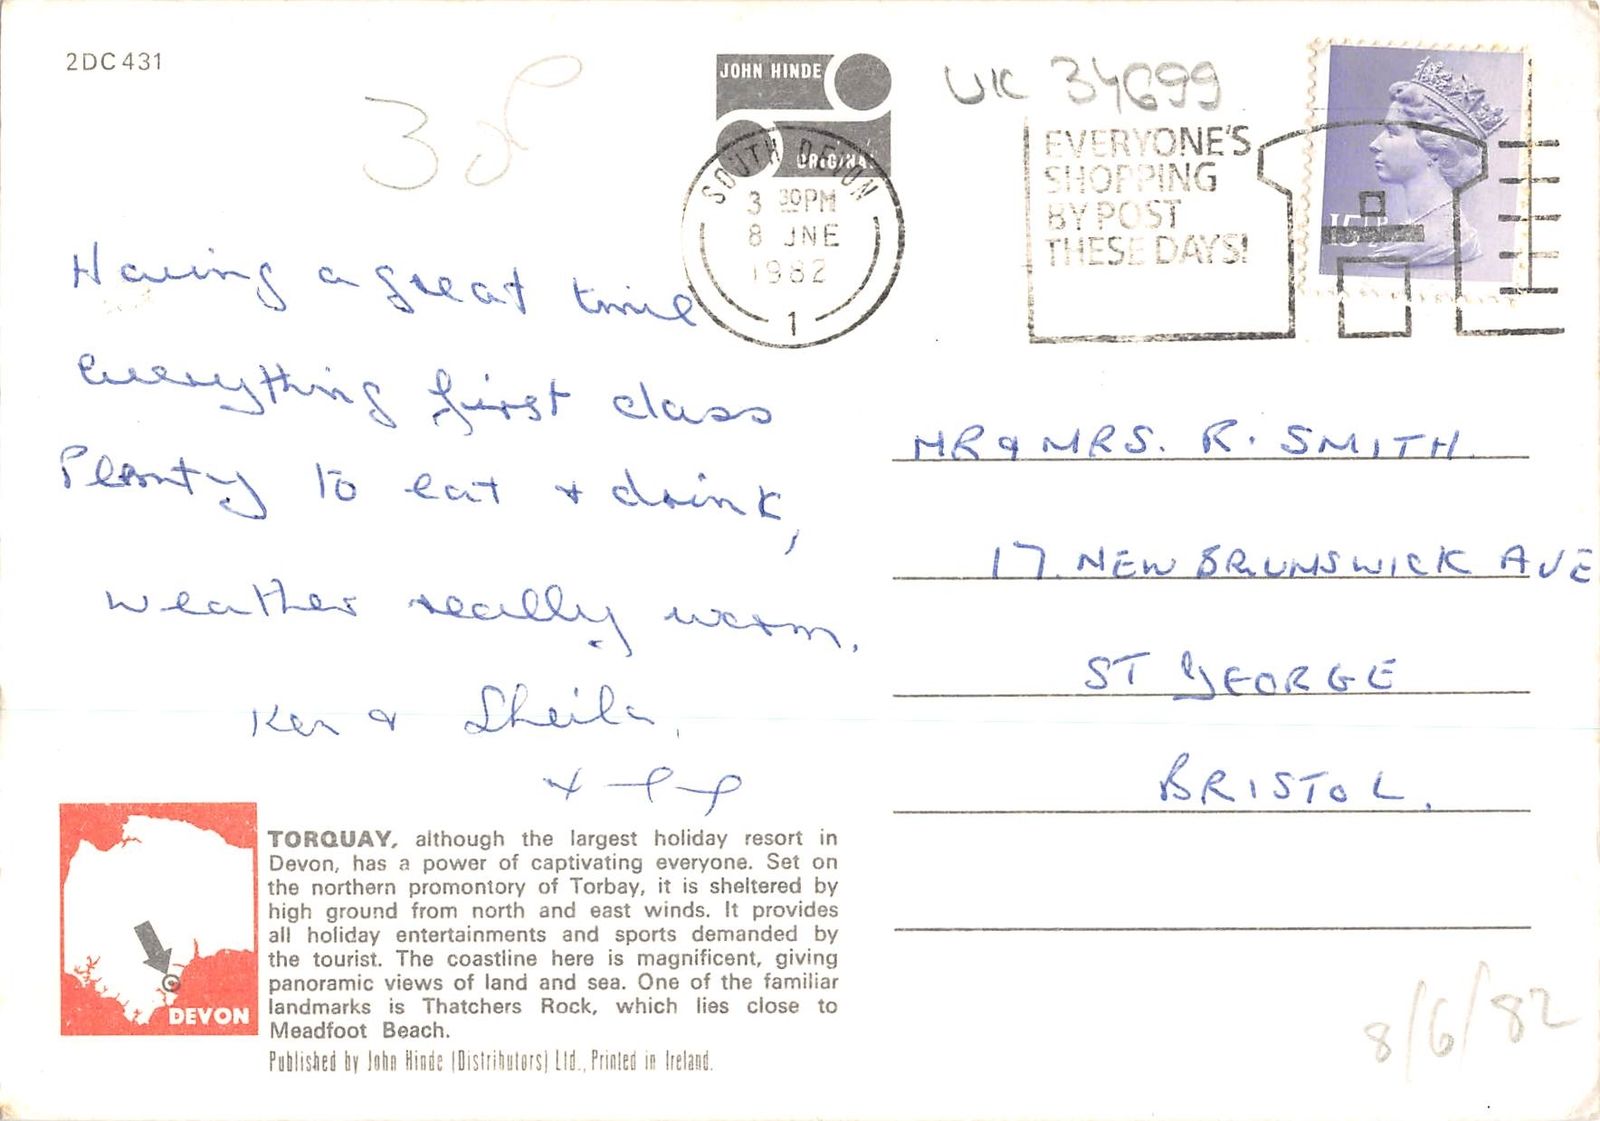 2DC431
30p
JOHN HINDE
ORIGINAL
UK 34699
SOUTH DEVON
3 30PM
8 JNE
1982
1
EVERYONE'S
SHOPPING
BY POST
THESE DAYS!
Having a great time
everything first class
Plenty to eat + drink,
weather really warm.
Ken & Sheila,
MR & MRS. R. SMITH.
17. NEW BRUNSWICK AVE
ST GEORGE
BRISTOL.
TORQUAY, although the largest holiday resort in
Devon, has a power of captivating everyone. Set on
the northern promontory of Torbay, it is sheltered by
high ground from north and east winds. It provides
all holiday entertainments and sports demanded by
the tourist. The coastline here is magnificent, giving
panoramic views of land and sea. One of the familiar
landmarks is Thatchers Rock, which lies close to
Meadfoot Beach.
Published by John Hinde (Distributors) Ltd., Printed in Ireland.
DEVON
8/6/82